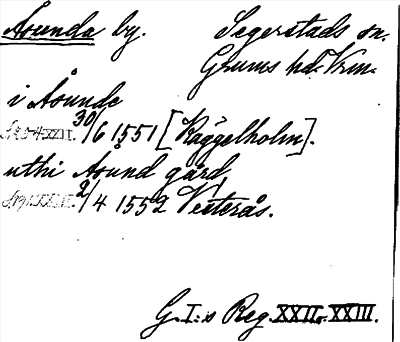 Åsunda by. Segerstads sn.
Grums hd. Vrm.
i Åsunde
30/6 1551 [Kaggelholm].
uthi Åsund gård,
2/4 1552 Vesterås.
G. I:s Reg. XXII, XXIII.